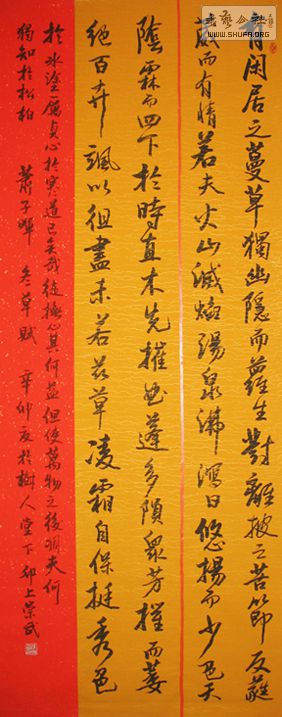 書藝公社
WWW.SHUFA.ORG
有閑居之蔓草獨幽隱而蘿生對離披之苦節反蕤
葳而有情若夫火山滅焰湯泉沸瀉日悠揚而少色天
陰霖而四下於時直木先摧曲蓬多隕眾芳摧而萎
絕百卉颯以徂盡未若茲草凌霜自保挺秀色
於冰塗厲貞心於寒道已矣哉徒撫心其何益但使萬物之後凋夫何
獨知於松柏 蕭子暉 冬草賦 辛卯夏於樹人堂下 上崇武